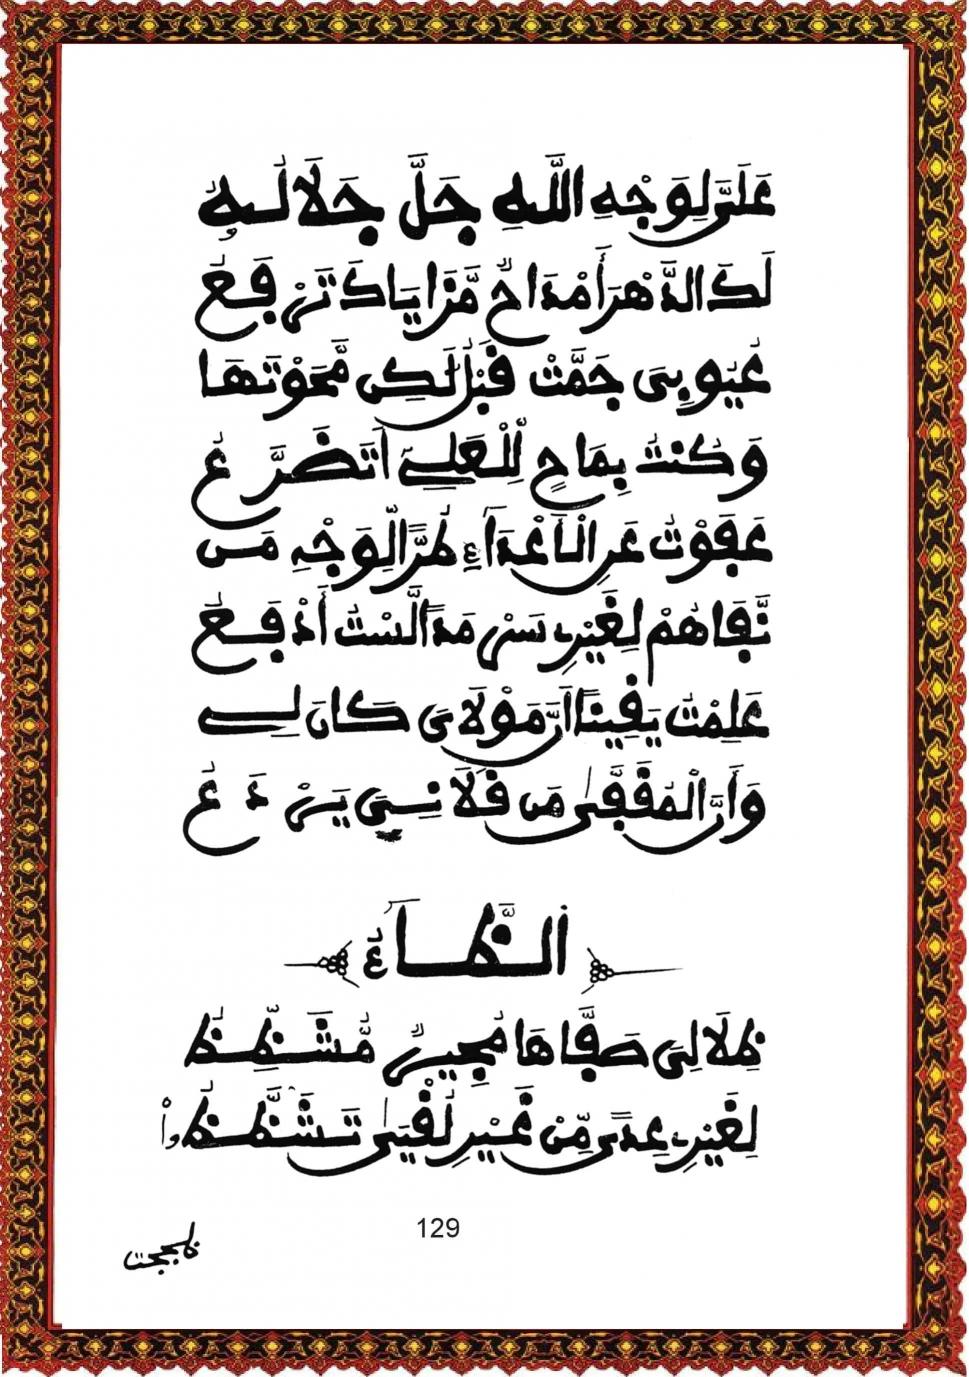 عَلَىَّ لِوَجْهِ اللَّهِ جَلَّ جَلَالُهُ
لَدَ الدَّهْرَ أَمْدَاحٌ مَّزَايَاكَ تَرْفَعُ
عُيُوبِىَ جَمَّتْ قَبْلُ لَكِن مَّحَوْتَهَا
وَكُنتُ بِمَاحٍ لِّلْعَلِى أَتَضَرَّعُ
عَفَوْتُ عَنِ الْأَعْدَاءِ طُرًّا لِّوَجْهِ مَن
نَّفَاهُمْ لِغَيْرِى سَرْمَدًا لَّسْتُ أَدْفَعُ
عَلِمْتُ يَقِينًا أَنَّ مَوْلَاىَ كَانَ لِى
وَأَنَّ الْمُقَفَّى مَن قَلَانِىَ يَرْدَعُ
الظَّاءُ
ظِلَالِى صَفَّاهَا مُجِيرٌ مُّشَظِّظُ
لِغَيْرِى عِدًى مِّنْ غَيْرِ لُقْيَى تَشَظَّظُوا
129